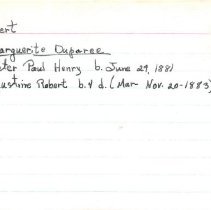 ert
arguerite Duparee
ter Paul Henry b. June 29, 1881
ustine Robert b. & d. (Mar- Nov. 20-1883)